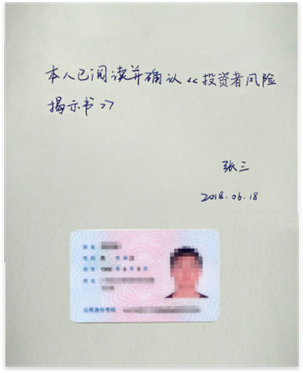 本人已阅读并确认《投资者风险
揭示书》
张三
2018.06.18
姓名
性别 男 民族 汉
出生 1986 年 6 月 9 日
住址
公民身份号码